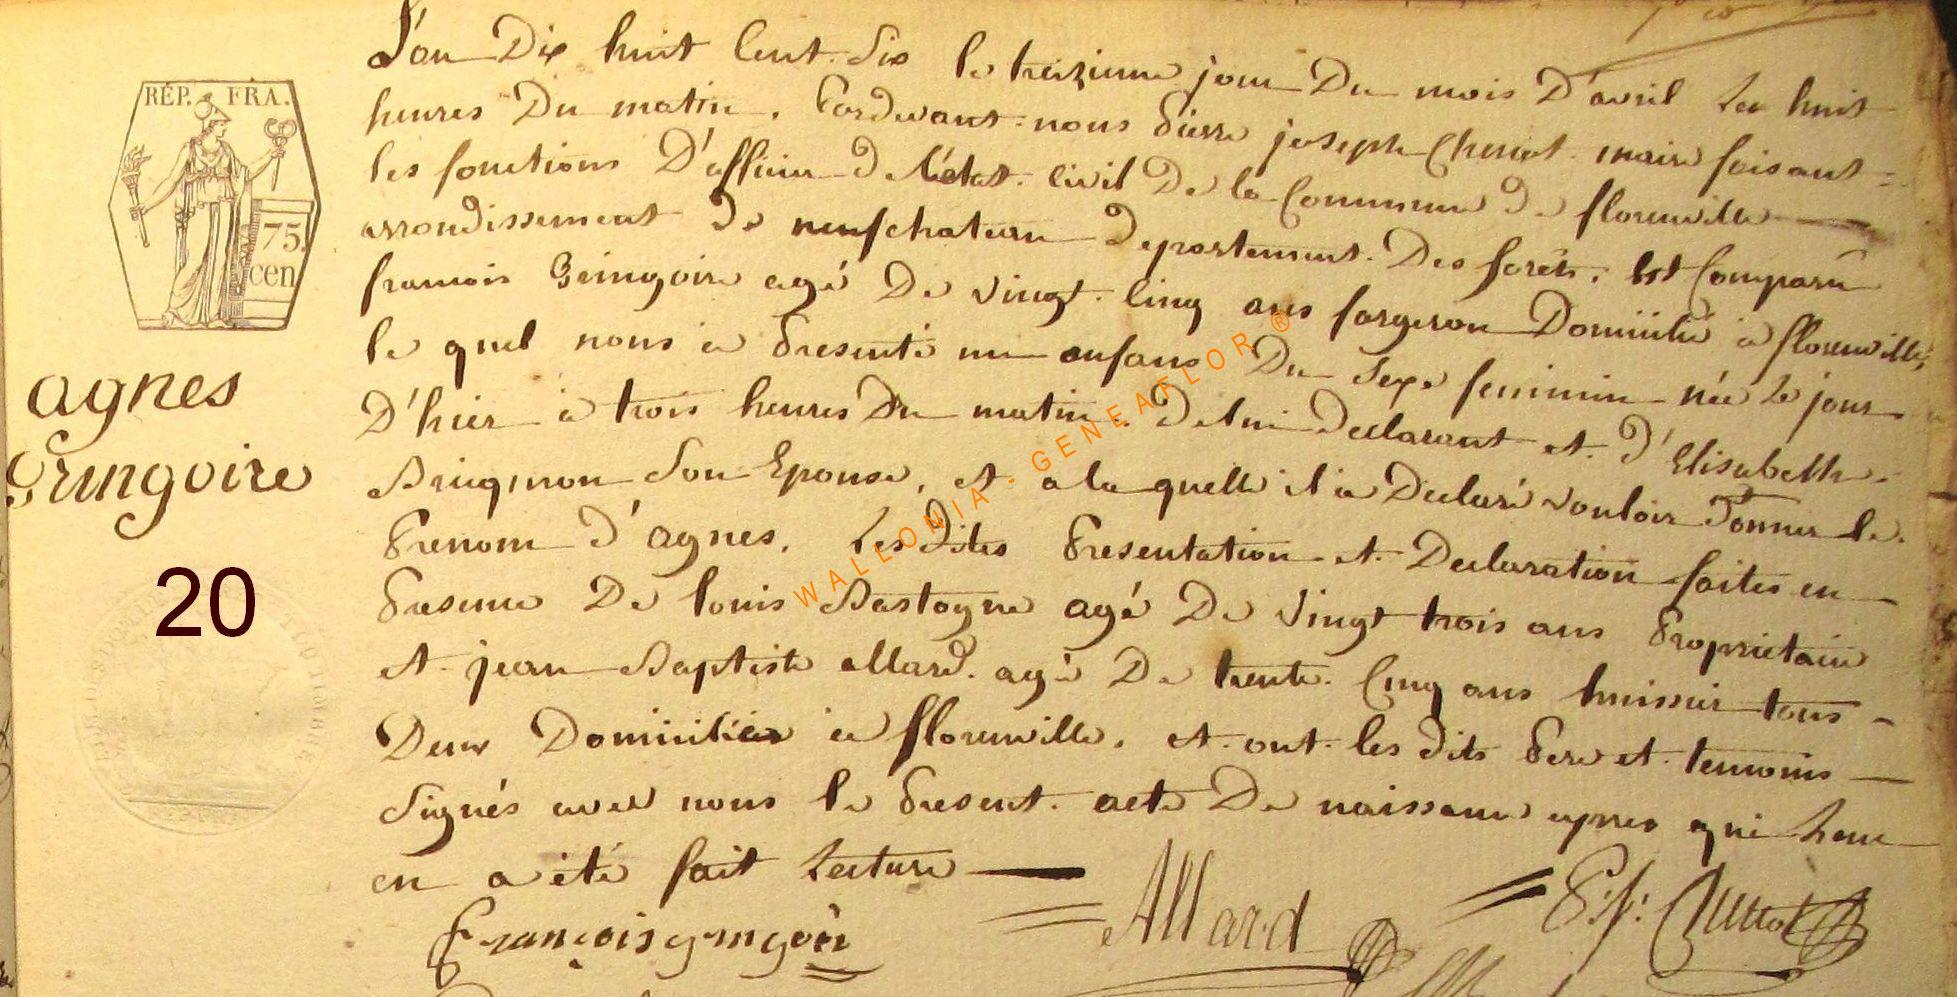 L'an Dix huit Cent Dix le treizieme jour Du mois D'avril Les huit
heures Du matin, Pardevant nous Pierre joseph maire faisant
RÉP. FRA.
les fonctions D'officier De l'état civil De la Commune De florenville
arrondissement De neufchateau Departement Des forêts, Est Comparu
75.
cen
francois Gringoire agé De vingt Cinq ans forgeron Domicilié à florenville,
le quel nous a Presenté un enfans Du Sexe feminin née Le jour
agnes
D'hier à trois heures Du matin, De lui Declarant et D'Elisabeth
Gringoire
son Epouse, et a la quelle il a Declaré vouloir Donner le
Prenom D'agnes, Les Dites Presentation et Declaration faites en
20
Presence De louis Bastogne agé De vingt trois ans Proprietaire
et jean Baptiste allard agé De trente Cinq ans huissier tous
Deux Domiciliés à florenville, et ont les Dits Pere et temoins
Signés avec nous le Present acte De naissance apres qui Leur
en a été fait Lecture
François gringoir Allard P. j.
WALLONIA - GENEALOR ®